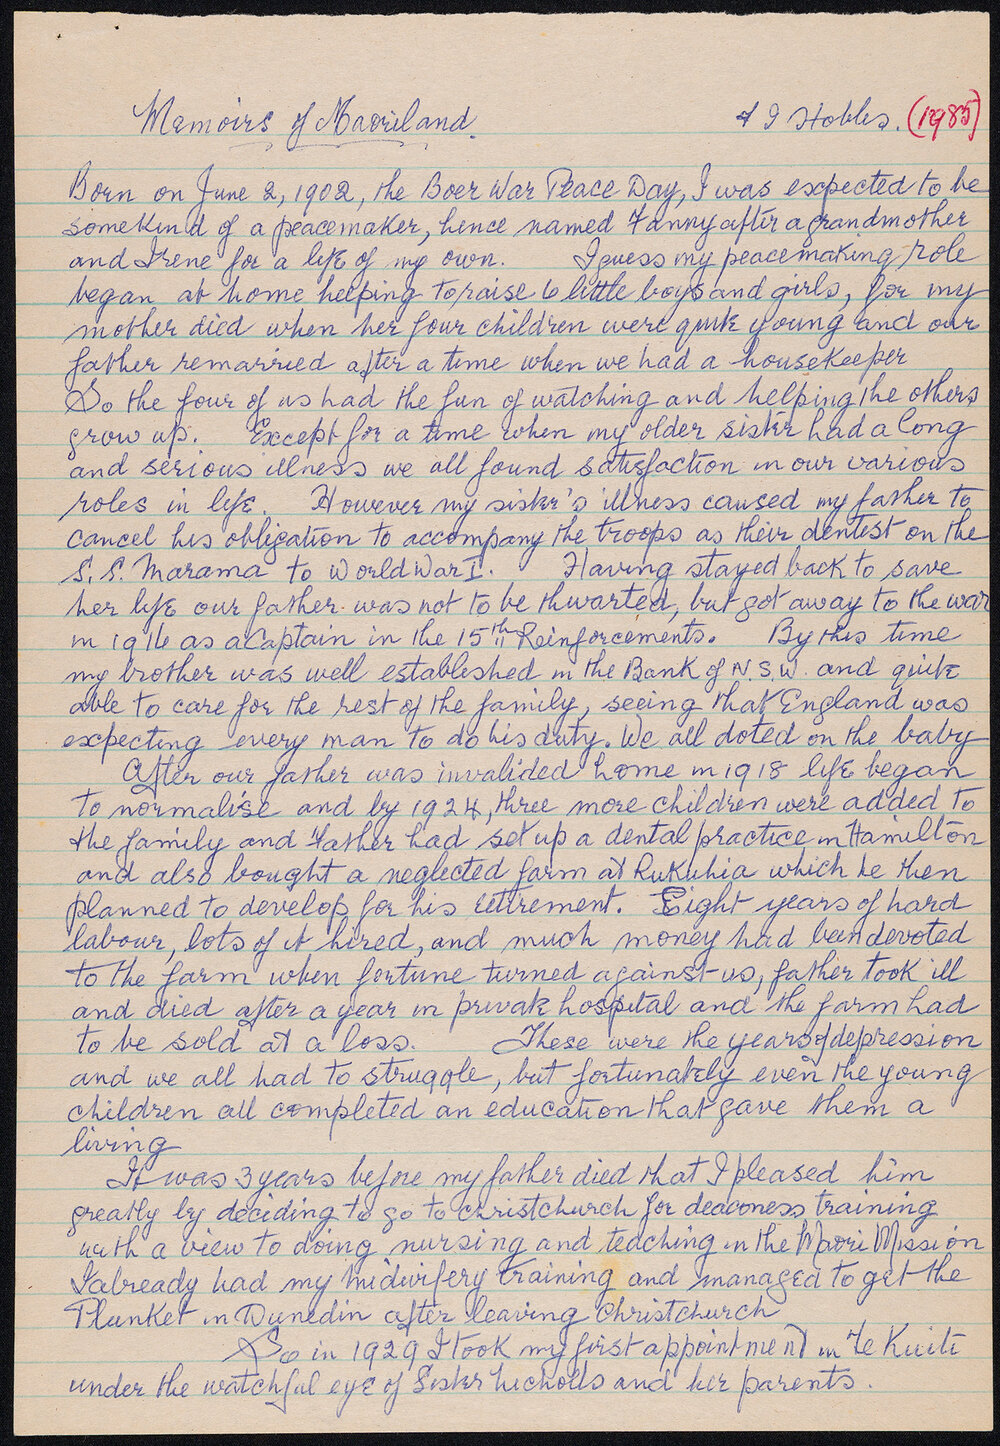 Memoirs of Maoriland. F I Hobbs. (1985)
Born on June 2, 1902, the Boer War Peace Day, I was expected to be
somekind of a peacemaker, hence named Fanny after a grandmother
and Irene for a life of my own. I guess my peacemaking role
began at home helping to raise 6 little boys and girls, for my
mother died when her four children were quite young and our
father remarried after a time when we had a housekeeper
So the four of us had the fun of watching and helping the others
grow up. Except for a time when my older sister had a long
and serious illness we all found satisfaction in our various
roles in life. However my sister's illness caused my father to
cancel his obligation to accompany the troops as their dentist on the
S.S. Marama to World War I. Having stayed back to save
her life our father was not to be thwarted, but got away to the war
in 1916 as a Captain in the 15th Reinforcements. By this time
my brother was well established in the Bank of N.S.W. and quite
able to care for the rest of the family, seeing that England was
expecting every man to do his duty. We all doted on the baby
After our father was invalided home in 1918 life began
to normalise and by 1924, three more children were added to
the family and Father had set up a dental practice in Hamilton
and also bought a neglected farm at Rukuhia which he then
planned to develop for his retirement. Eight years of hard
labour, lots of it hired, and much money had been devoted
to the farm when fortune turned against us, father took ill
and died after a year in private hospital and the farm had
to be sold at a loss. These were the years of depression
and we all had to struggle, but fortunately even the young
children all completed an education that gave them a
living
It was 3 years before my father died that I pleased him
greatly by deciding to go to Christchurch for deaconess training
with a view to doing nursing and teaching in the Maori Mission
I already had my midwifery training and managed to get the
Plunket in Dunedin after leaving Christchurch
So in 1929 I took my first appointment in Te Kuiti
under the watchful eye of Sister Nicholls and her parents.